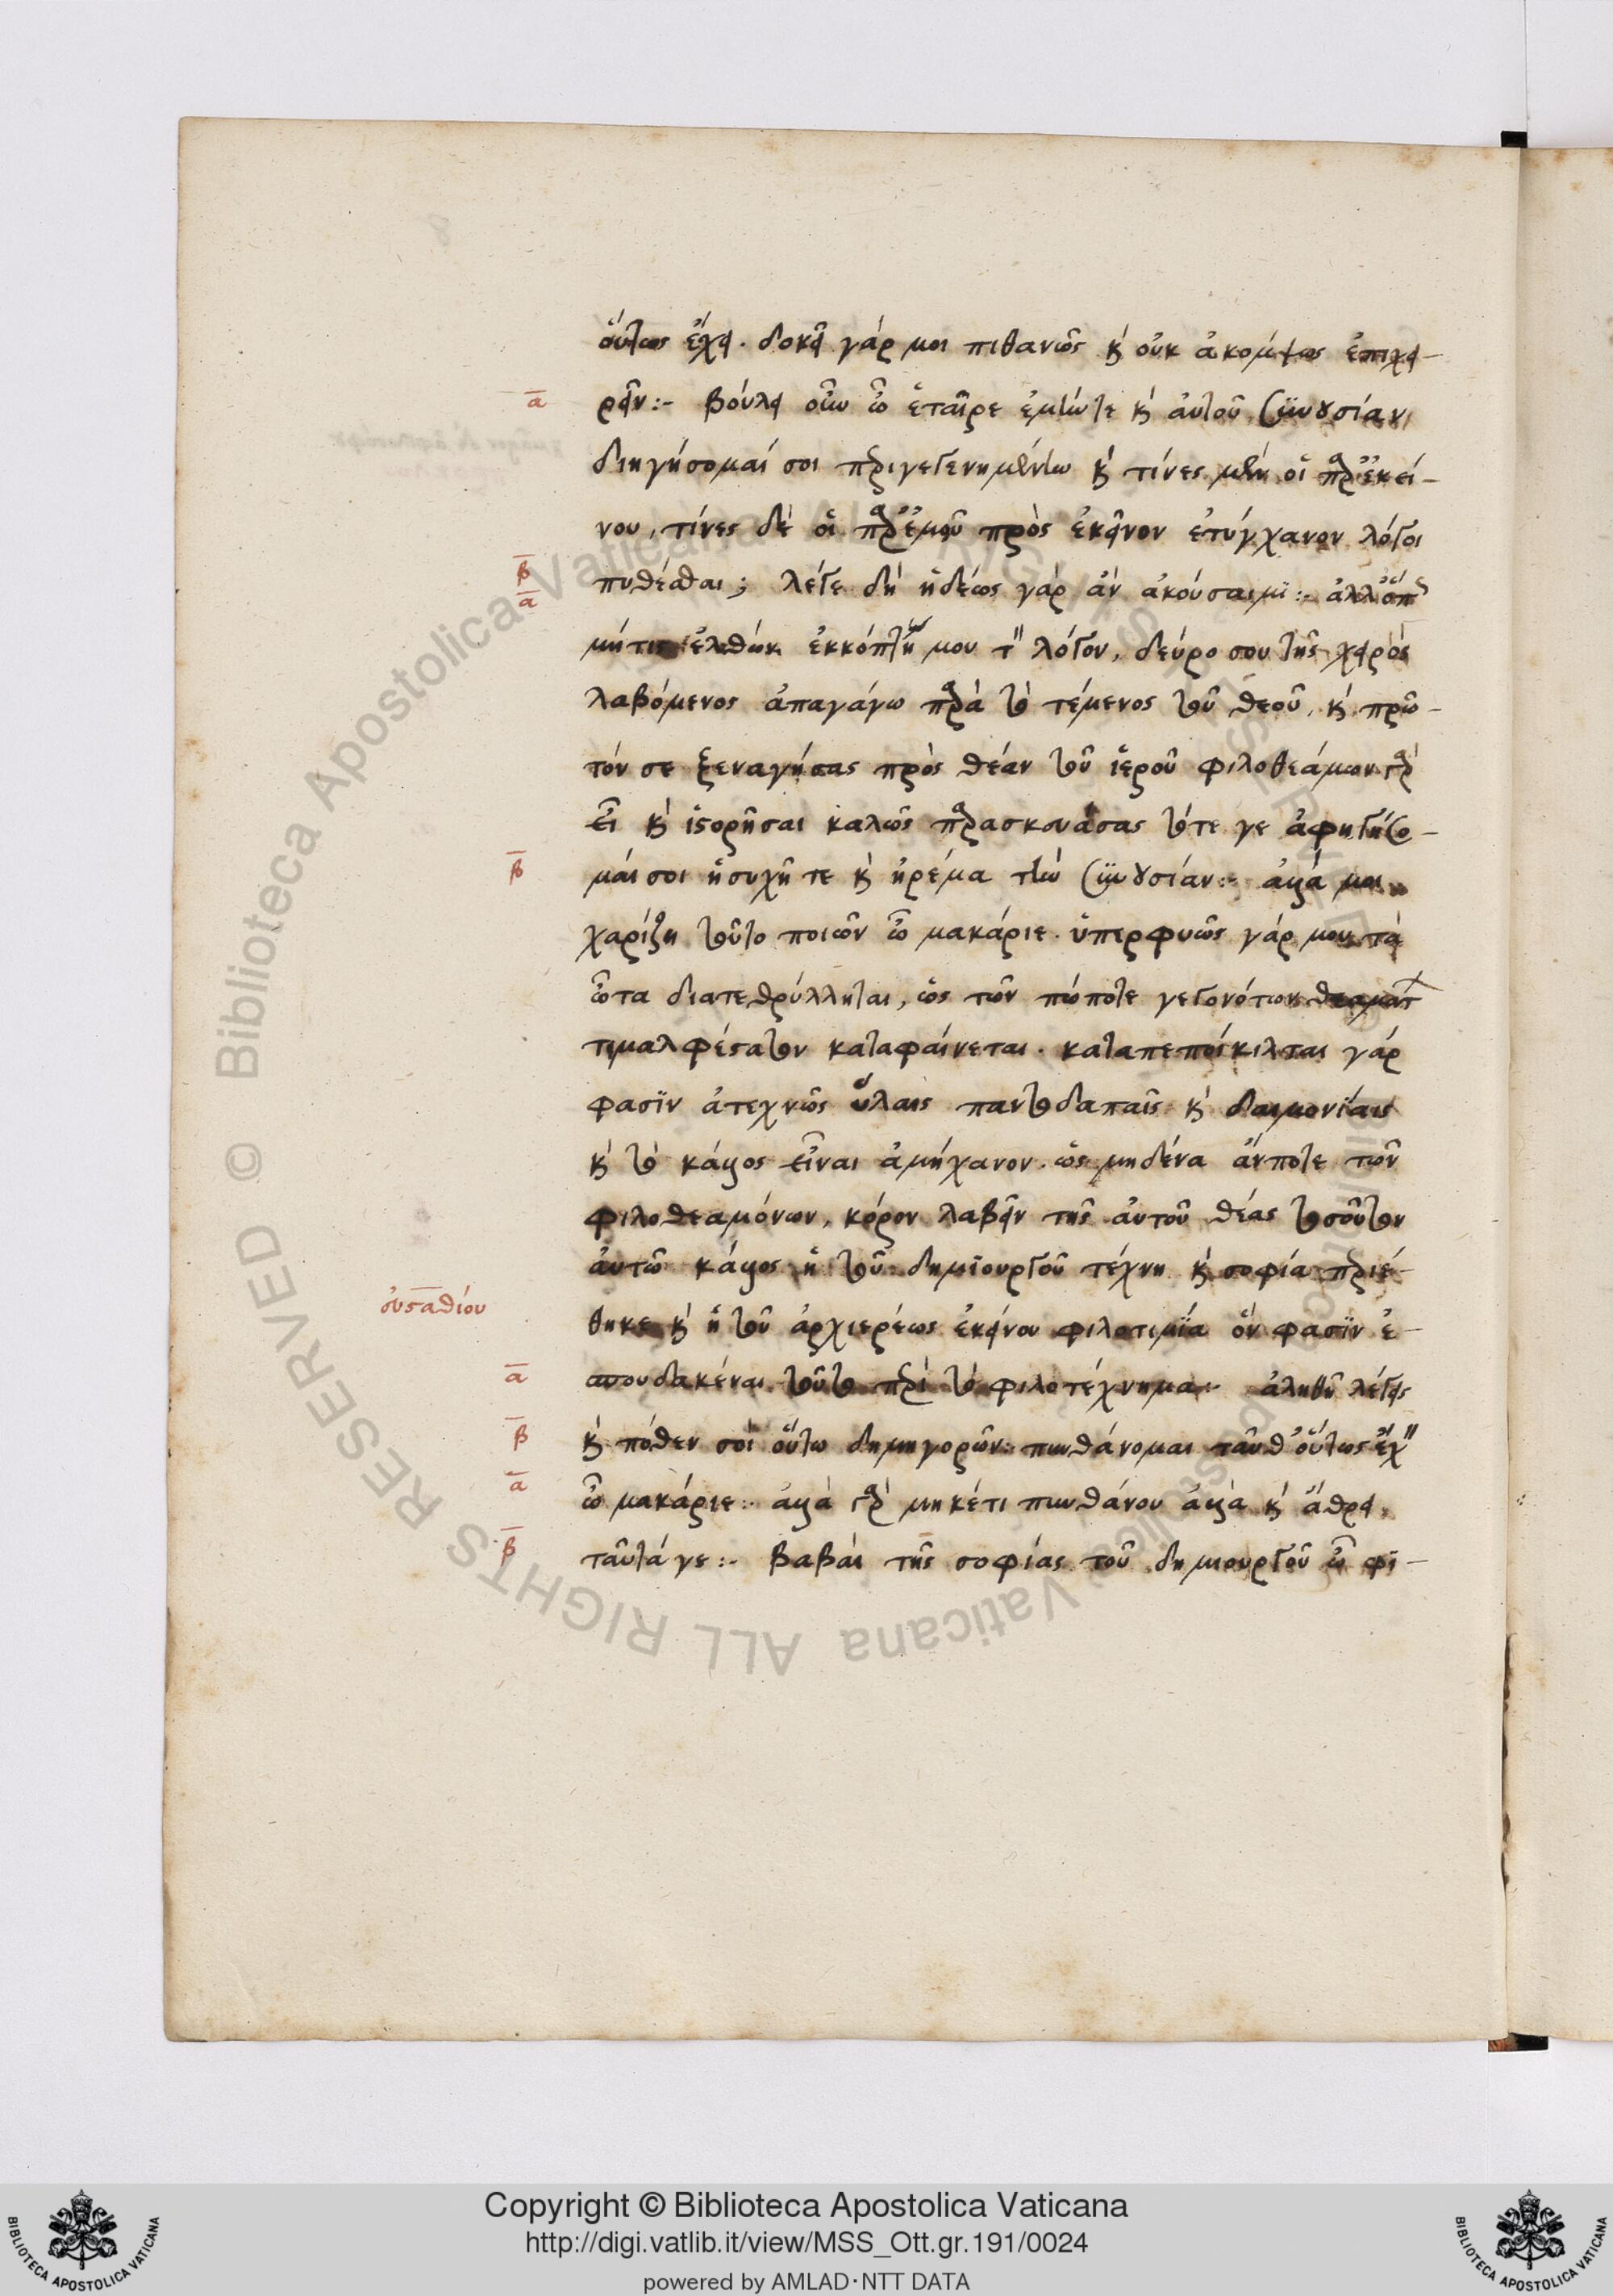 οὕτως ἔχει. δοκεῖ γάρ μοι πιθανῶς κ οὐκ ἀκομψως ἐπιχει-
α ρεῖν:- βούλει οὖν ὦ ἑταῖρε ἐμήν τε κ αὐτοῦ συνουσίαν
διηγήσομαί σοι περιγεγενημένην κ τίνες μὲν οἱ παρ ἐκεί-
νου, τίνες δὲ οἱ παρ ἐμοῦ πρὸς ἐκεῖνον ἐτύγχανον λόγοι
β πυθέσθαι; λέγε δὴ ἡδέως γὰρ ἂν ἀκούσαιμι:- ἀλλ
α μήτις ἐλθὼν ἐκκόπτῃ μου τ λόγον, δεύρο σου τῆς χειρὸς
λαβόμενος ἀπαγάγω παρὰ τὸ τέμενος τοῦ θεοῦ, κ πρῶ-
τόν σε ξεναγήσας πρὸς θέαν τοῦ ἱεροῦ φιλοθεάμων γὰρ
εἶ κ ἱστορῆσαι καλῶς παρασκευάσας τότε γε ἀφηγήσο-
β μαί σοι ἡσυχῆ τε κ ἠρέμα τὴν συνουσίαν:- ἀλλά μοι
χαρίζῃ τοῦτο ποιῶν ὦ μακάριε. ὑπερφυῶς γάρ μου τὰ
ὦτα διατεθρύλληται, ὡς τῶν πώποτε γεγονότων θεαμάτ
τιμαλφέστατον καταφαίνεται. καταπεποίκιλται γάρ
φασϊν ἀτεχνῶς ὕλαις παντοδαπαῖς κ δαιμονίαις
κ τὸ κάλλος εἶναι ἀμήχανον. ὡς μηδένα ἄν ποτε τῶν
φιλοθεαμόνων, κόρον λαβεῖν τῆς αὐτοῦ θέας τοσοῦτον
αὐτῶ κάλλος ἡ τοῦ δημϊουργοῦ τέχνη κ σοφία περιέ-
οὐσταθίου θηκε κ ἡ τοῦ ἀρχιερέως ἐκείνου φιλοτιμΐα ὅν φασϊν ἐ-
α σπουδακέναι τοῦτο περὶ τὸ φιλοτέχνημα:- ἀληθῆ λέγεις
β κ πόθεν σοὶ οὕτω δημηγορῶν: πυνθάνομαι ταῦθ οὕτως ἔχ
α ὦ μακάριε:- ἀλλὰ γὰρ μηκέτι πυνθάνου ἀλλὰ κ ἄθρει
β ταῦτά γε:- βαβαὶ τῆς σοφίας τοῦ δημιουργοῦ ὦ φί-
Copyright © Biblioteca Apostolica Vaticana
http://digi.vatlib.it/view/MSS_Ott.gr.191/0024
powered by AMLAD·NTT DATA
BIBLIOTECA APOSTOLICA VATICANA
BIBLIOTECA APOSTOLICA VATICANA